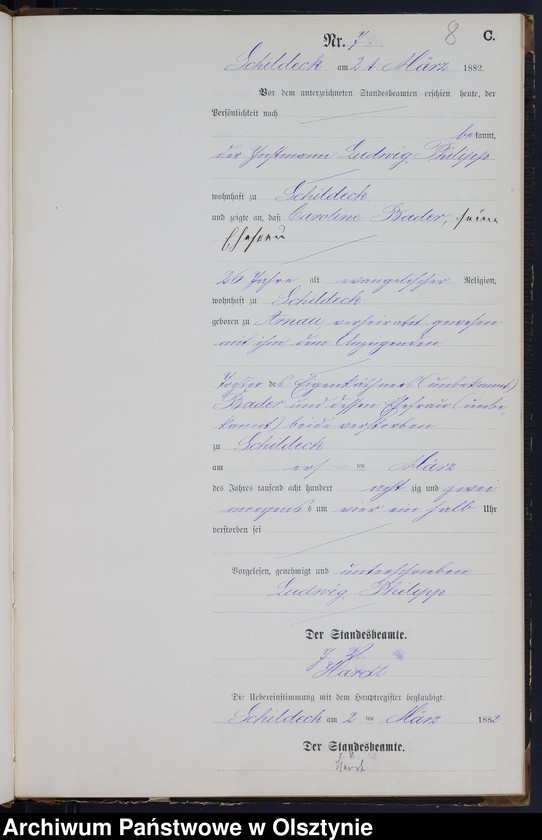 8 C.
Nr. 7.
Schildeck am 2t März 1882.
Vor dem unterzeichneten Standesbeamten erschien heute, der
Persönlichkeit nach
bekannt,
der Instmann Ludwig Philipp
wohnhaft zu Schildeck
und zeigte an, daß Caroline Bader, seine
Ehefrau
26 Jahre alt evangelischer Religion,
wohnhaft zu Schildeck
geboren zu Arnau, verheirathet gewesen
mit ihm, dem Anzeigenden
Tochter des Eigenkäthners (unbekannt)
Bader und dessen Ehefrau (unbe-
kannt) beide verstorben
zu Schildeck
am ersten März
des Jahrs tausend acht hundert acht zig und zwei
morgens um vier ein halb Uhr
verstorben sei
Vorgelesen, genehmigt und unterschrieben
Ludwig Philipp
Der Standesbeamte.
J. V.
Hardt
Die Uebereinstimmung mit dem Hauptregister beglaubigt.
Schildeck am 2 ten März 1882
Der Standesbeamte.
J. V.
Archiwum Państwowe w Olsztynie